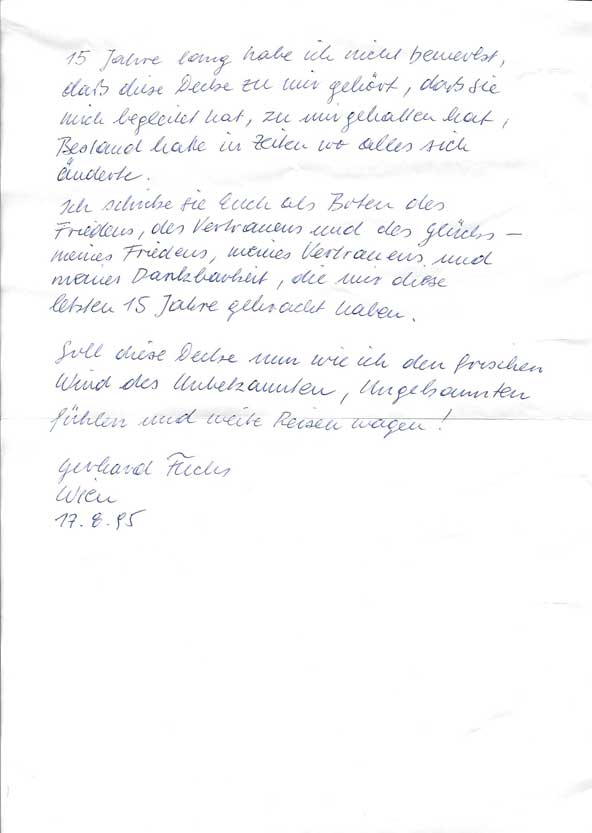 15 Jahre lang habe ich nicht bemerkt,
daß diese Decke zu mir gehört, daß sie
mich begleitet hat, zu mir gehalten hat,
Bestand hatte in Zeiten wo alles sich
änderte.
Ich schicke sie Euch als Boten des
Friedens, des Vertrauens und des Glücks –
meines Friedens, meines Vertrauens und
meiner Dankbarkeit, die mir diese
letzten 15 Jahre gebracht haben.
Soll diese Decke nun wie ich den frischen
Wind des Unbekannten, Ungekannten
fühlen und weite Reisen wagen!
Gerhard Fuchs
Wien
17.8.95